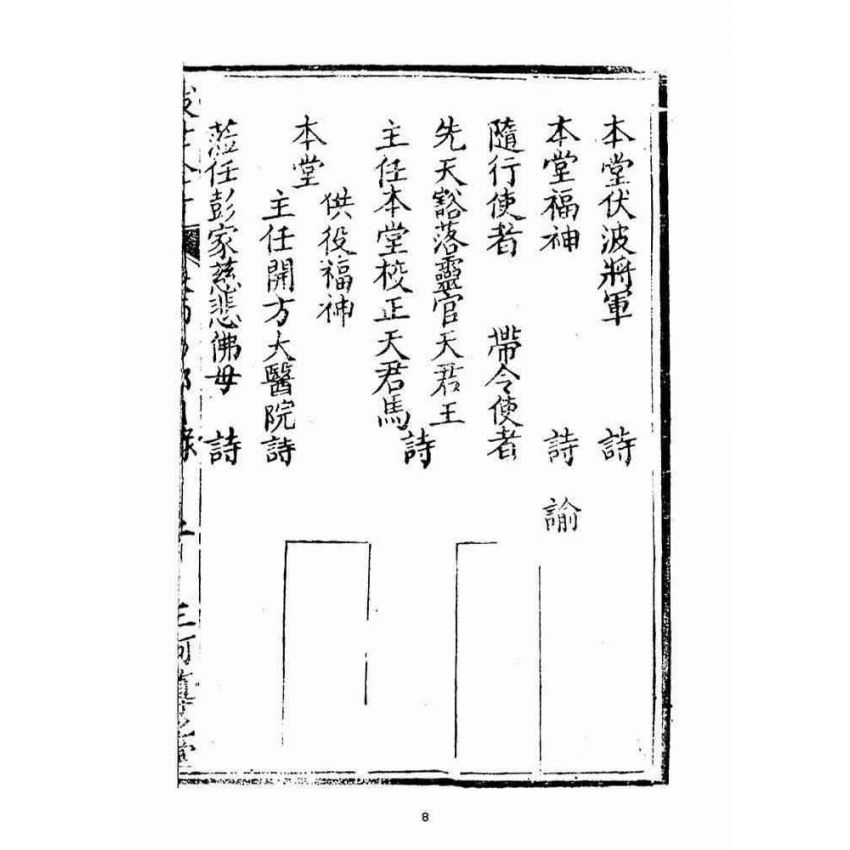 本堂伏波將軍 詩
本堂福神 詩 諭
隨行使者 帶令使者
先天豁落靈官天君王
主任本堂校正天君馬
詩
本堂
供役福神
主任開方大醫院詩
蒞任彭家慈悲佛母 詩
8